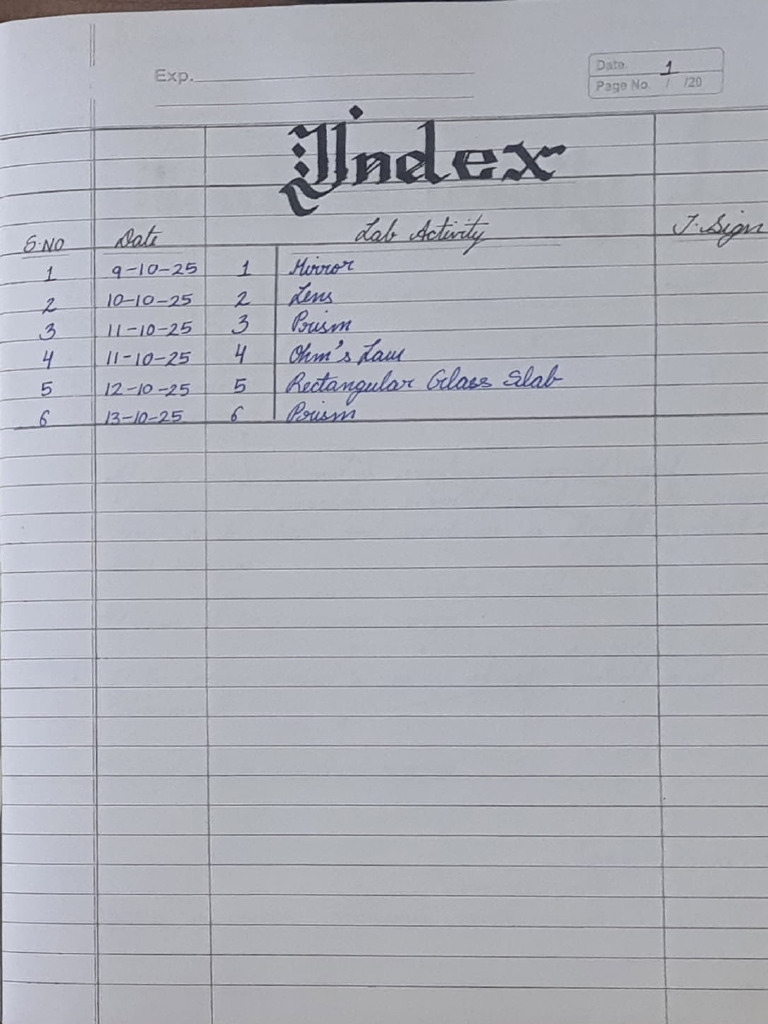 Exp.
Date. 1
Page No. / /20
Index
S.NO Date Lab Activity T. Sign
1 9-10-25 1 Mirror
2 10-10-25 2 Lens
3 11-10-25 3 Prism
4 11-10-25 4 Ohm's Law
5 12-10-25 5 Rectangular Glass Slab
6 13-10-25 6 Prism